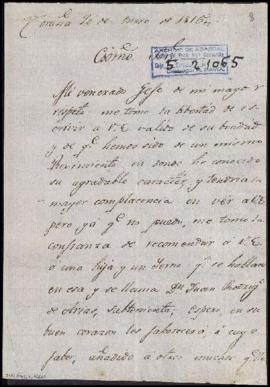 Coruña 20 de Enero de 1816
Exmo. Sor.
ARCHIVO DE ABASCAL
5 2 1065
Mi venerado Jefe de mi mayor
respeto me tomo la libertad de es-
crivir a V.E. valido de su bondad
y de q.e hemos sido de un mismo
Regimiento en donde he conocido
su agradable caracter, y tendria la
mayor complacencia en ver a V.E.
pero ya q.e no puedo, me tomo la
confianza de recomendar a V.E.
a una hija y un Yerno q.e se hallan
en esa y se llama Dn. Juan Rodrig.z
de Arias, subteniente; espero, en su
buen corazon los faborecerá á cuyo
fabor, añadido a otros muchos q.e